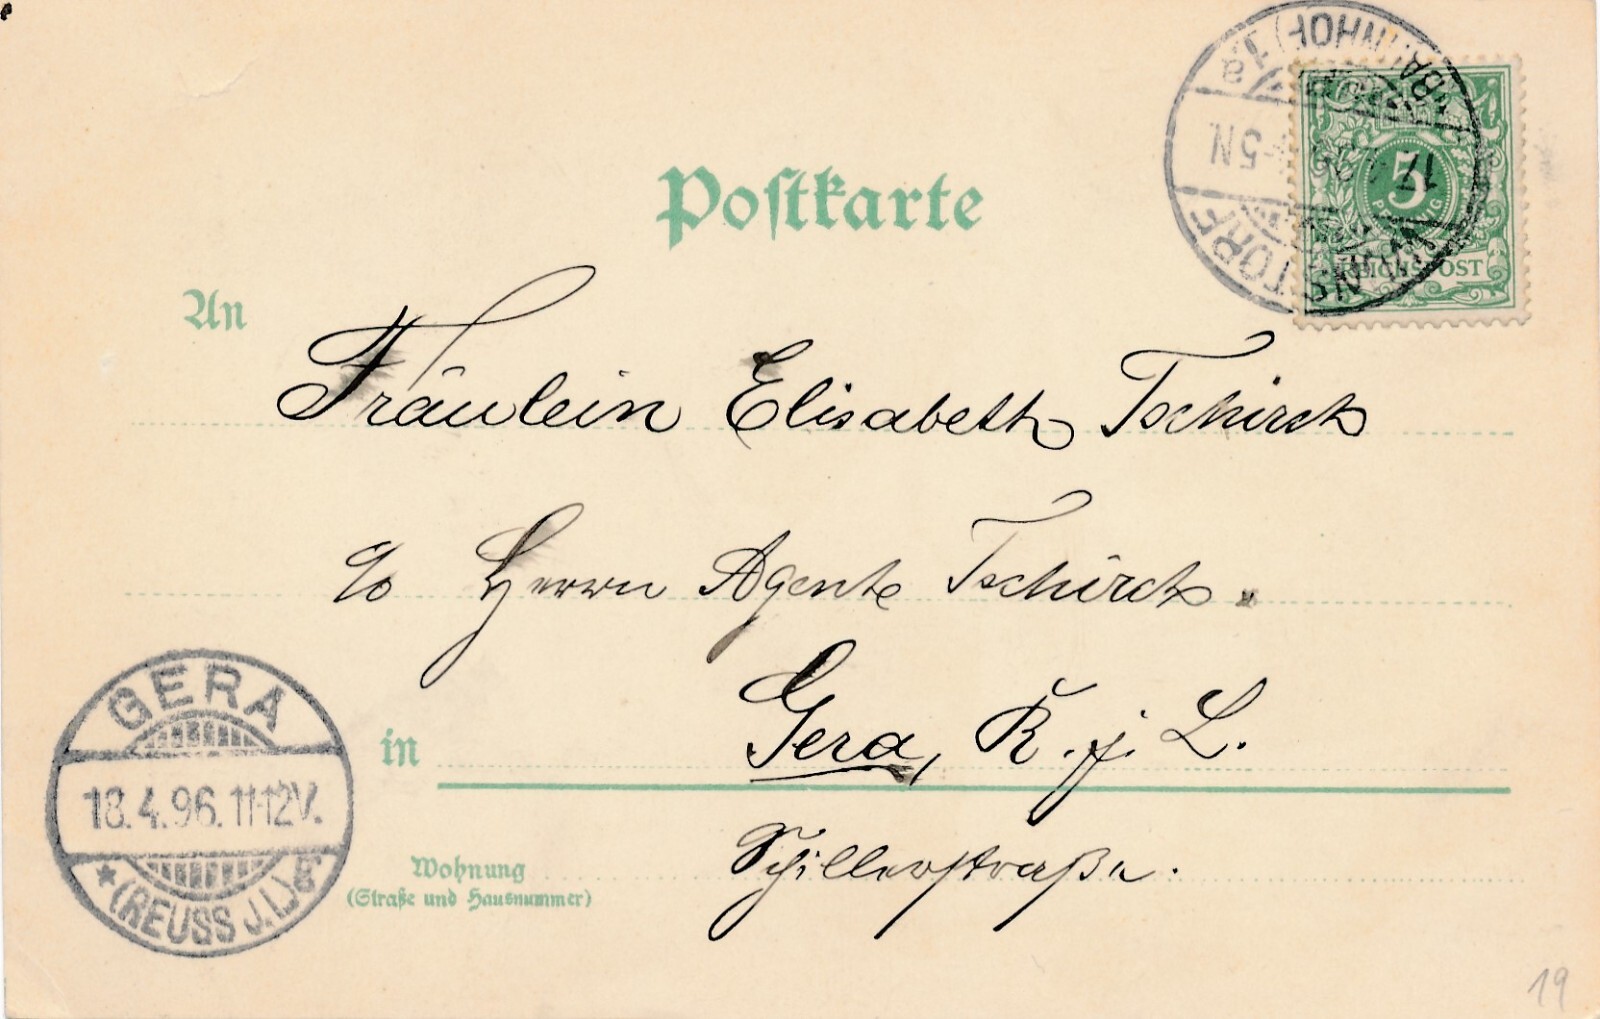 Postkarte
5
PFENNIG
REICHSPOST
17
5N
(BAHNHOF) 1a
An
Fräulein Elisabeth Tschirch
c/o Herrn Agente Tschirch.
in Gera, R. j. L.
Wohnung
(Straße und Hausnummer)
Schillerstraße.
GERA
18.4.96.11-12V.
* (REUSS J.L.) g
19